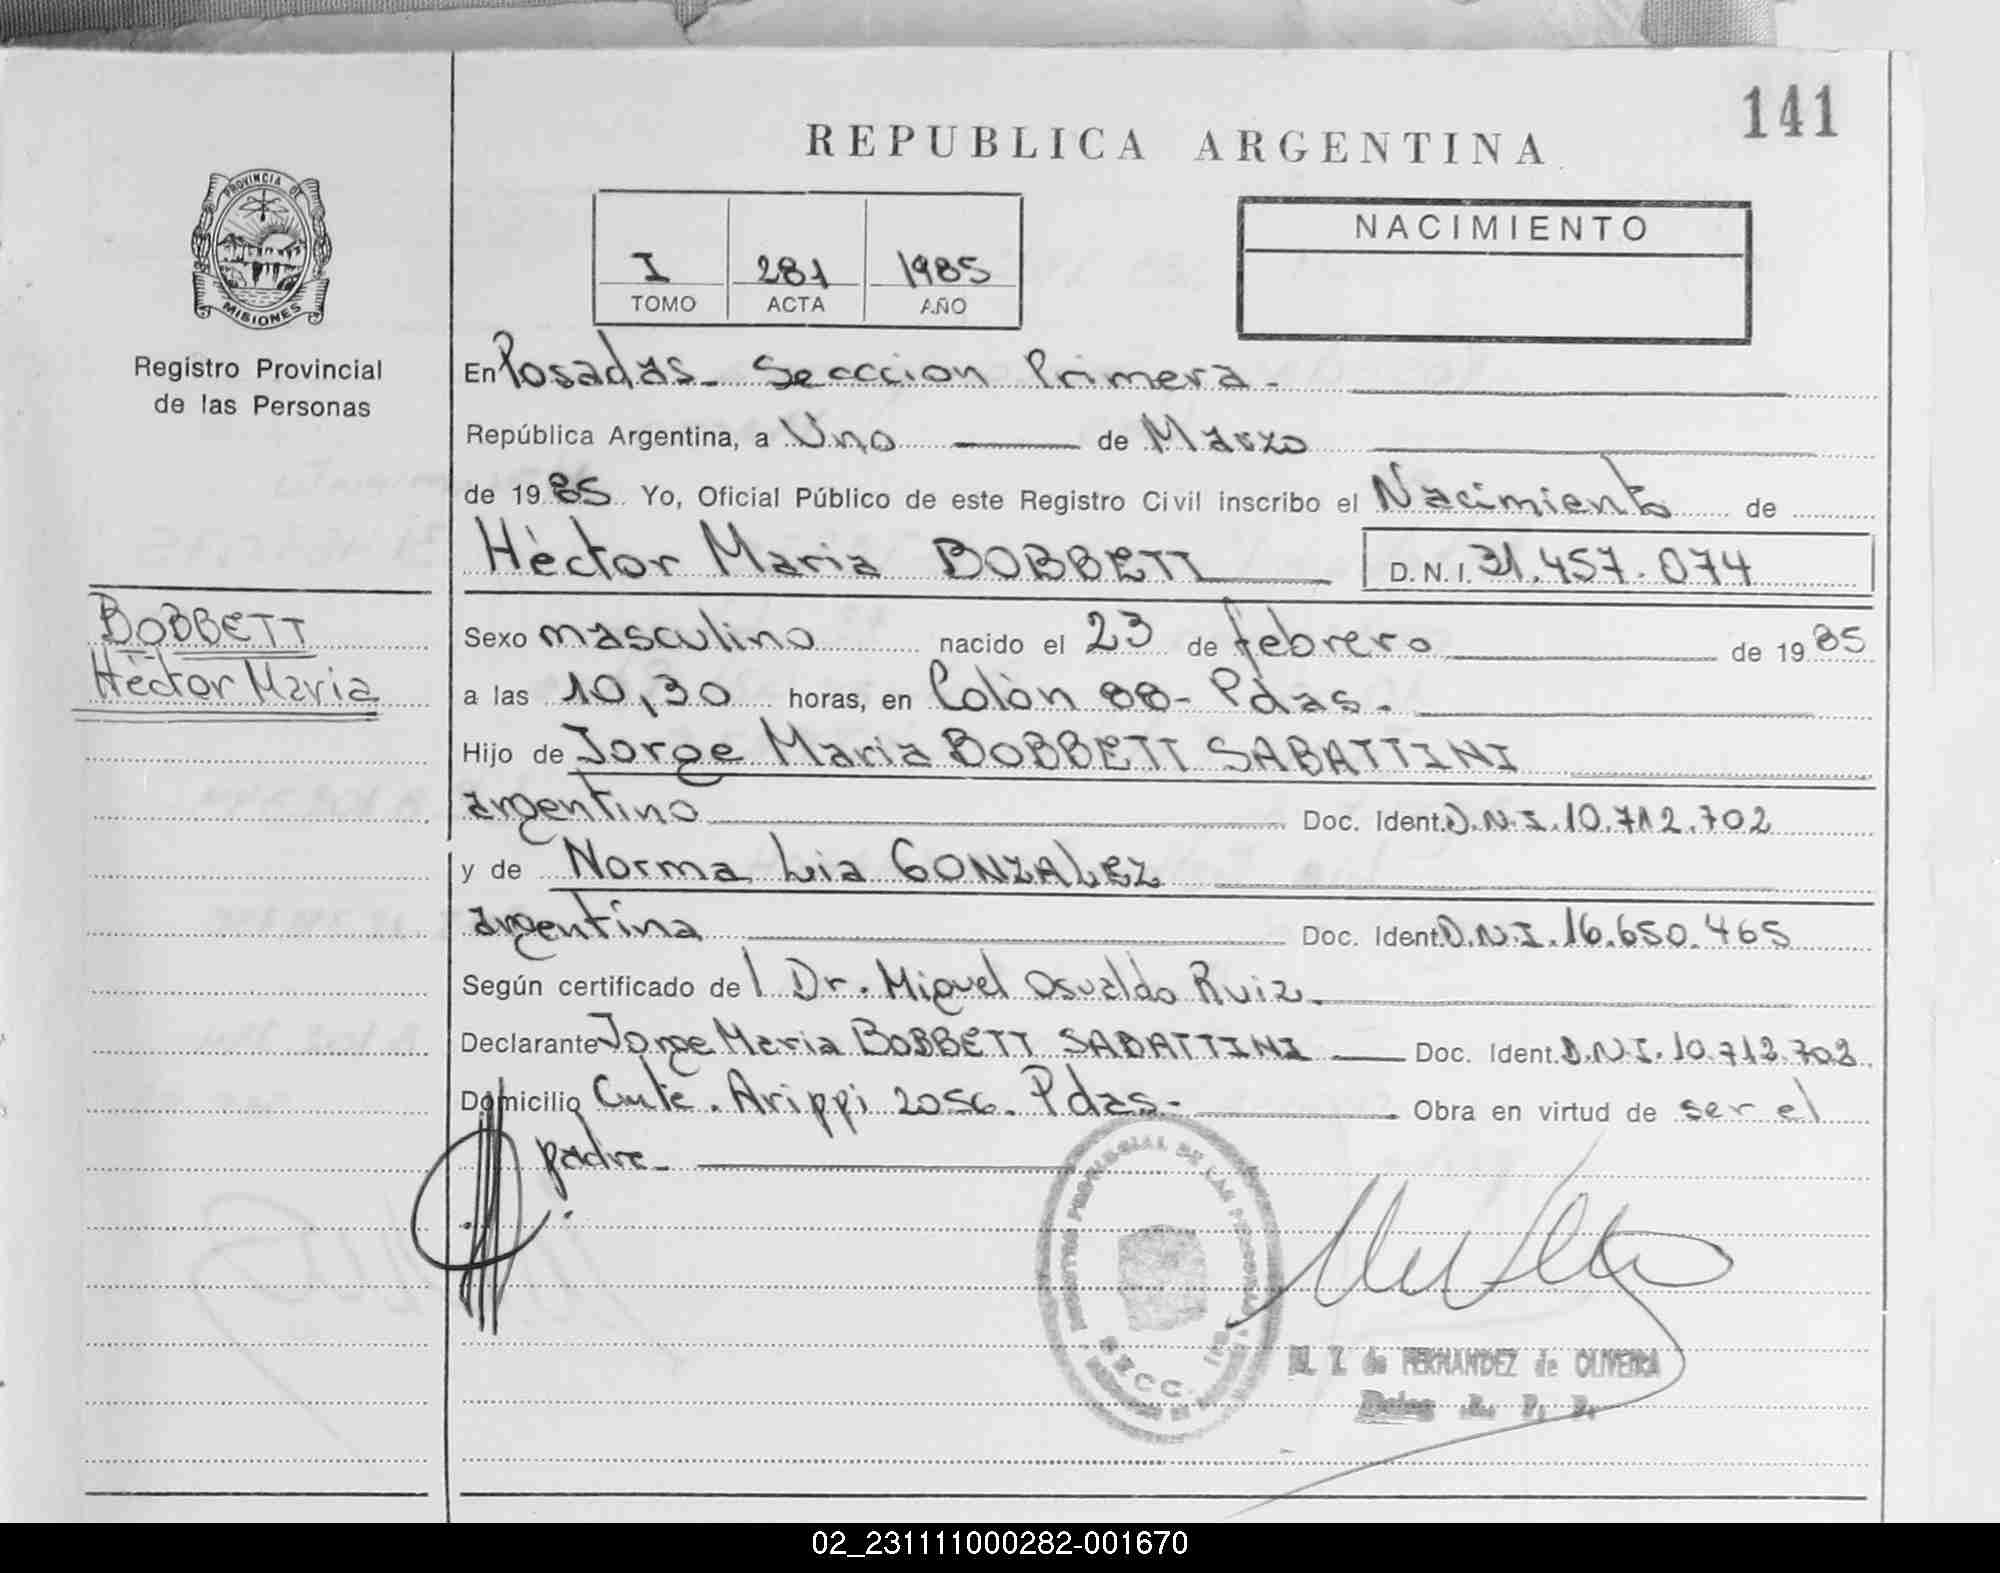 141
REPUBLICA ARGENTINA
PROVINCIA DE
MISIONES
Registro Provincial
de las Personas
I 281 1985
TOMO ACTA AÑO
NACIMIENTO
En Posadas - Secccion Primera -
República Argentina, a Uno de Marzo
de 1985 Yo, Oficial Público de este Registro Civil inscribo el Nacimiento de
Hèctor Maria BOBBETT D.N.I. 31.457.074
BOBBETT
Hèctor Maria
Sexo masculino nacido el 23 de febrero de 1985
a las 10,30 horas, en Colòn 88 - Pdas.
Hijo de Jorge Maria BOBBETT SABATTINI
argentino Doc. Ident. D.N.I. 10.712.702
y de Norma Lia GONZALEZ
argentina Doc. Ident. D.N.I. 16.650.465
Según certificado del Dr. Miguel Osvaldo Ruiz.
Declarante Jorge Maria BOBBETT SABATTINI Doc. Ident. D.N.I. 10.712.702
Domicilio Cnte. Arippi 2056. Pdas - Obra en virtud de ser el
padre -
REGISTRO PROVINCIAL DE LAS PERSONAS
SECC. 1ra.
M. I. de FERNANDEZ de OLIVEIRA
Deleg. R. P. P.
02_231111000282-001670